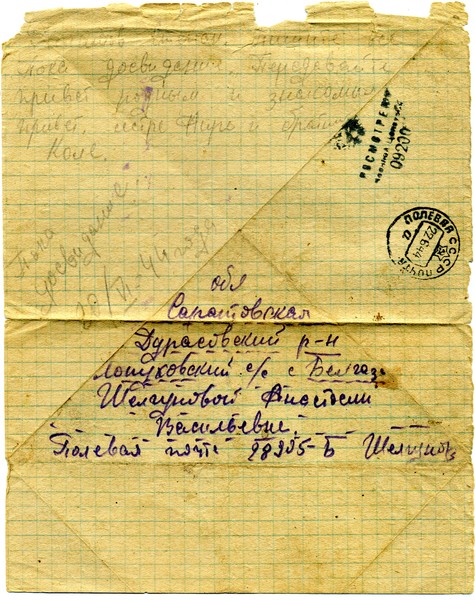 Пока досвидание Передавайте
привет родным и знакомым
привет сестре Нюре и братишке
Коле.
Пока
досвидание
20/VI-44 года
ПРОСМОТРЕНО
Военной Цензурой
09200
ПОЛЕВАЯ ПОЧТА
СССР
22.6.44
обл
Саратовская
Дурасовский р-н
Лопуховский с/с с Белгаза
Шелгуновой Анастасии
Васильевне.
Полевая почта 28395-Б Шелгунов